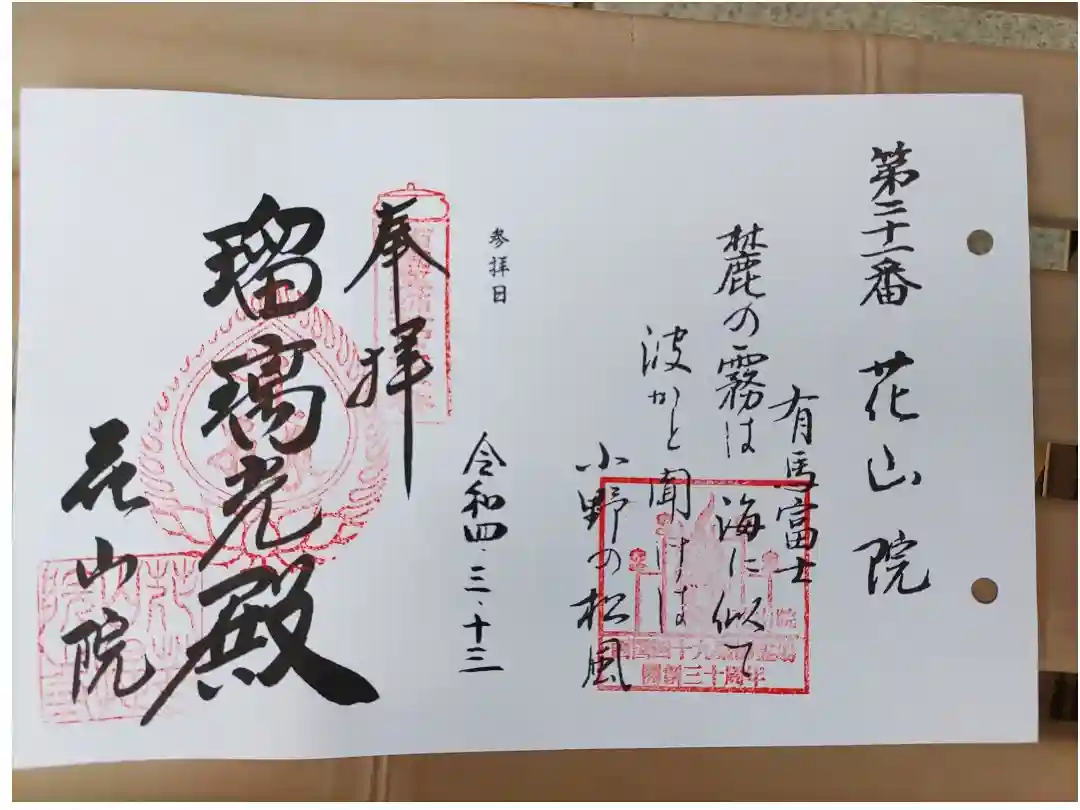 第二十一番 花山院
有馬富士
麓の霧は 海に似て
波かと聞けば
小野の松風
参拝日
令和四・三・十三
奉拝
瑠璃光殿
花山院
四十九
開創三十周年